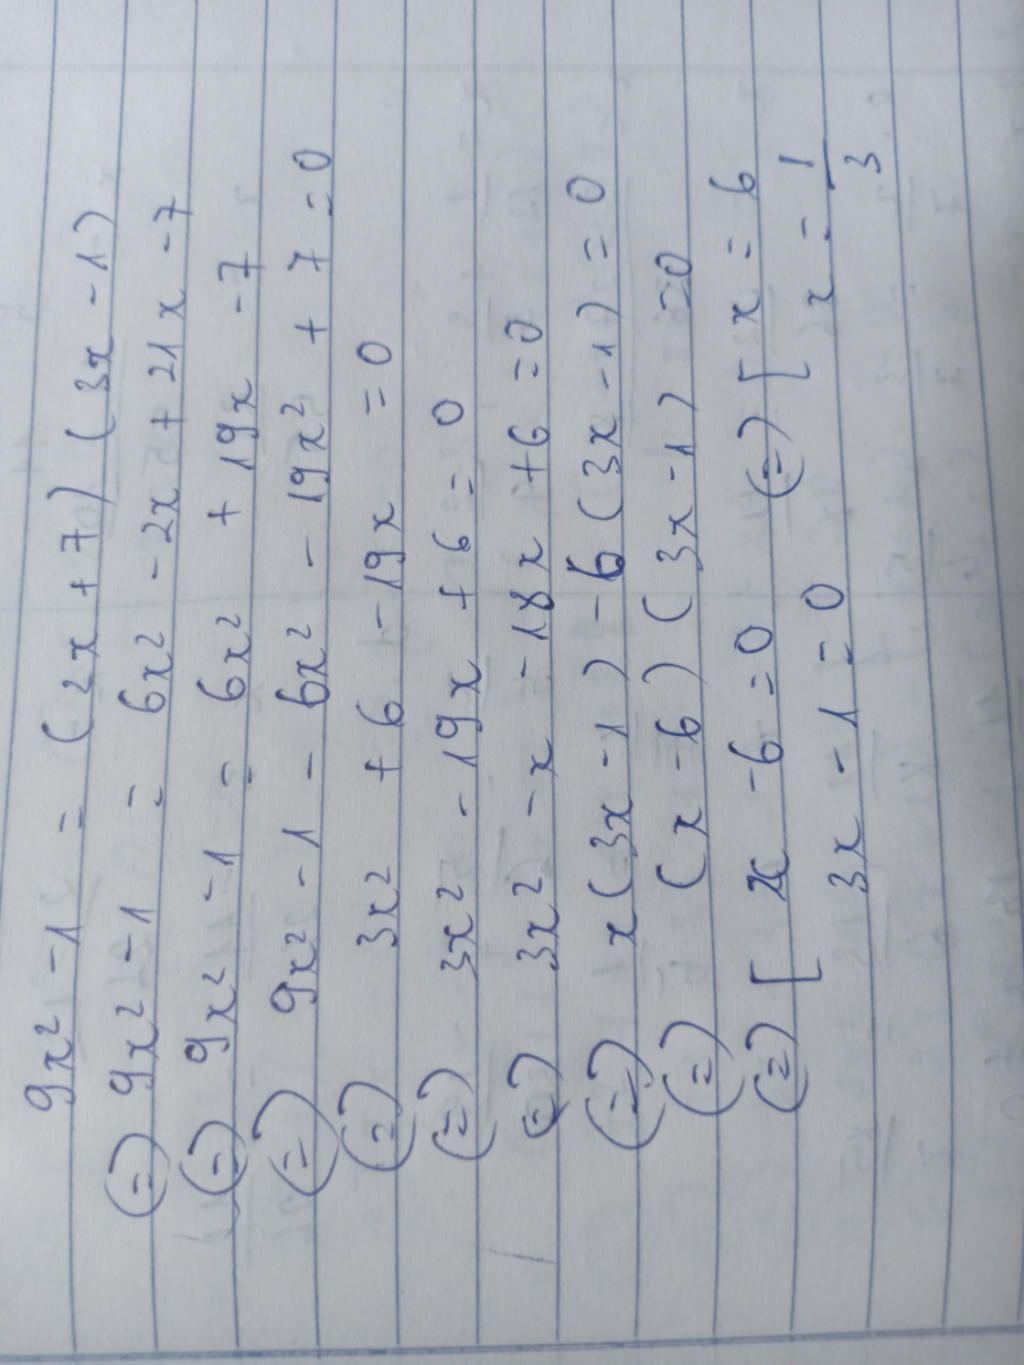 9x² - 1 = (2x + 7) (3x - 1)
(=) 9x² - 1 = 6x² - 2x + 21x - 7
(=) 9x² - 1 = 6x² + 19x - 7
(=) 9x² - 1 - 6x² - 19x² + 7 = 0
(=) 3x² + 6 - 19x = 0
(=) 3x² - 19x + 6 = 0
(=) 3x² - x - 18x + 6 = 0
(=) x(3x - 1) - 6(3x - 1) = 0
(=) (x - 6) (3x - 1) = 0
(=) [ x - 6 = 0 (=) [ x = 6
3x - 1 = 0 x = 1/3